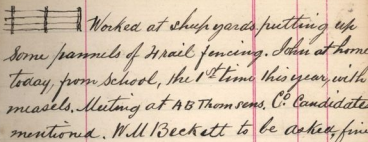 Worked at sheep yards putting up
Some pannels of 4 rail fencing. John at home
today, from School, the 1st time this year, with
measels. Meeting at AB Thomsons. Co. Candidates
mentioned. WM Beckett to be asked, fine